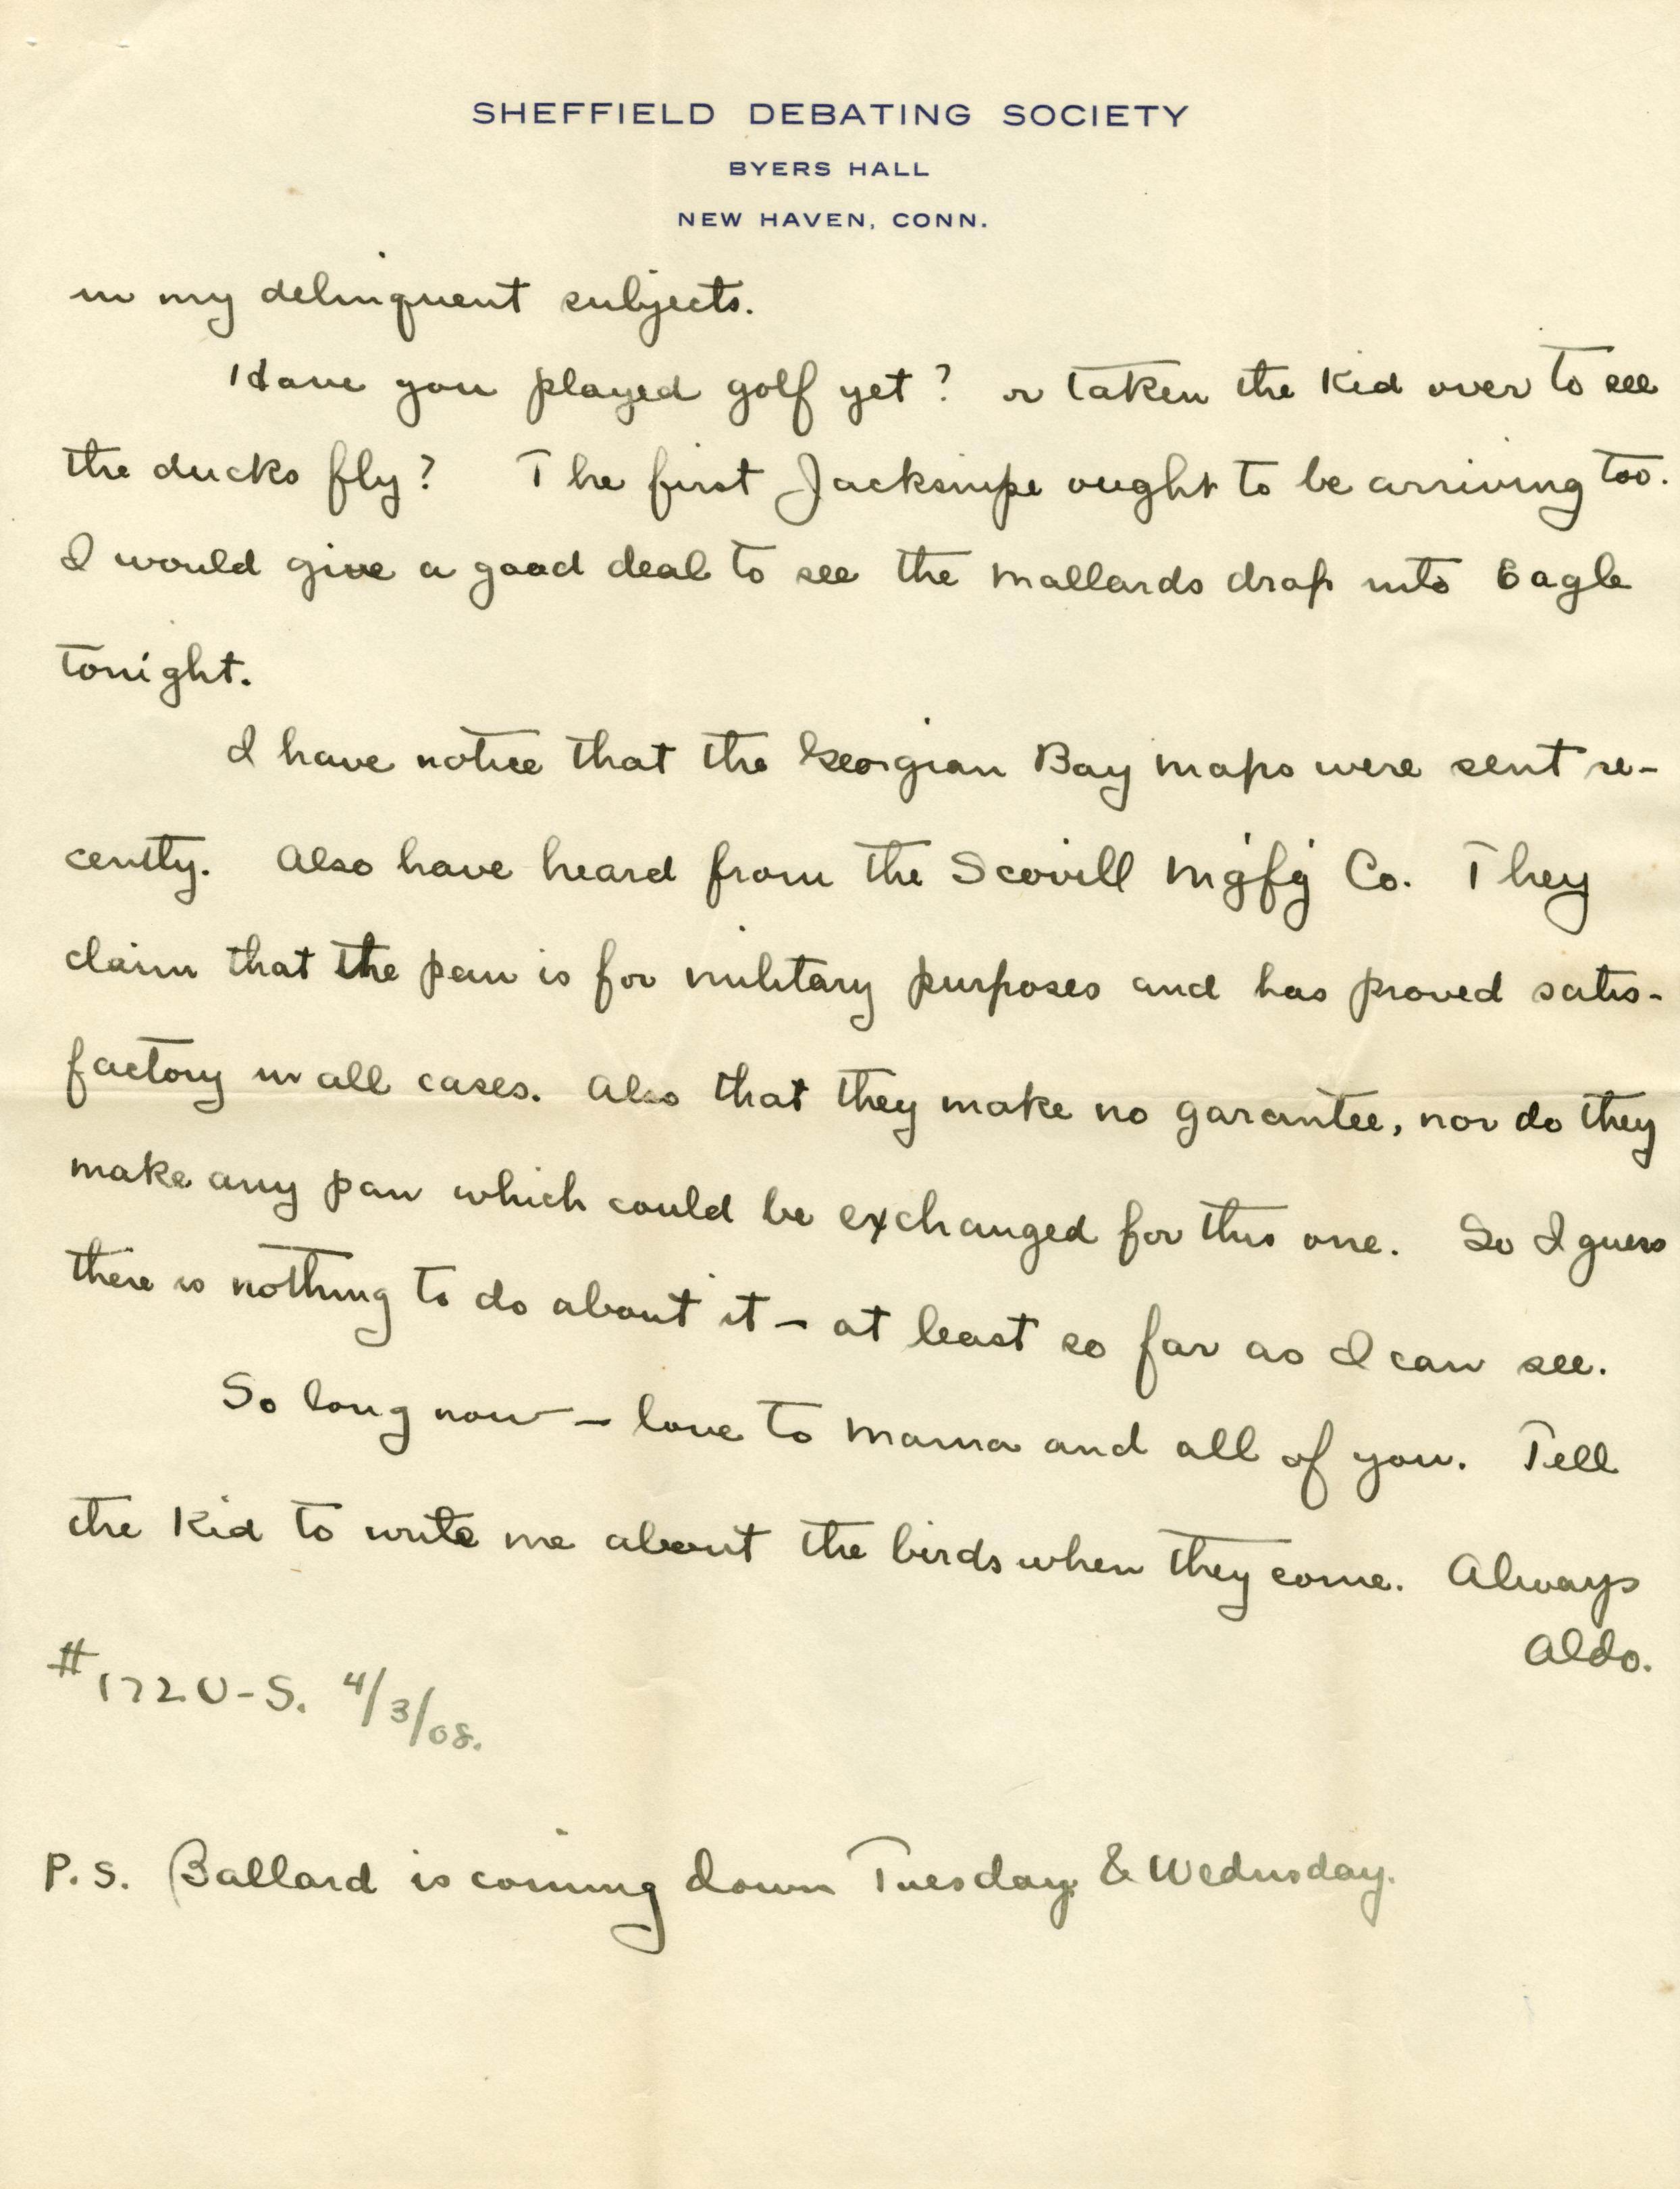 SHEFFIELD DEBATING SOCIETY
BYERS HALL
NEW HAVEN, CONN.
in my delinquent subjects.
Have you played golf yet? or taken the Kid over to see
the ducks fly? The first Jacksnipe ought to be arriving too.
I would give a good deal to see the mallards drop into Eagle
tonight.
I have notice that the Georgian Bay maps were sent re-
cently. Also have heard from the Scovill M'g'f'g Co. They
claim that the pan is for military purposes and has proved satis-
factory in all cases. Also that they make no garantee, nor do they
make any pan which could be exchanged for this one. So I guess
there is nothing to do about it — at least so far as I can see.
So long now — love to Mama and all of you. Tell
the Kid to write me about the birds when they come. Always
Aldo.
#172 U-S. 4/3/08.
P.S. Ballard is coming down Tuesday & Wednsday.